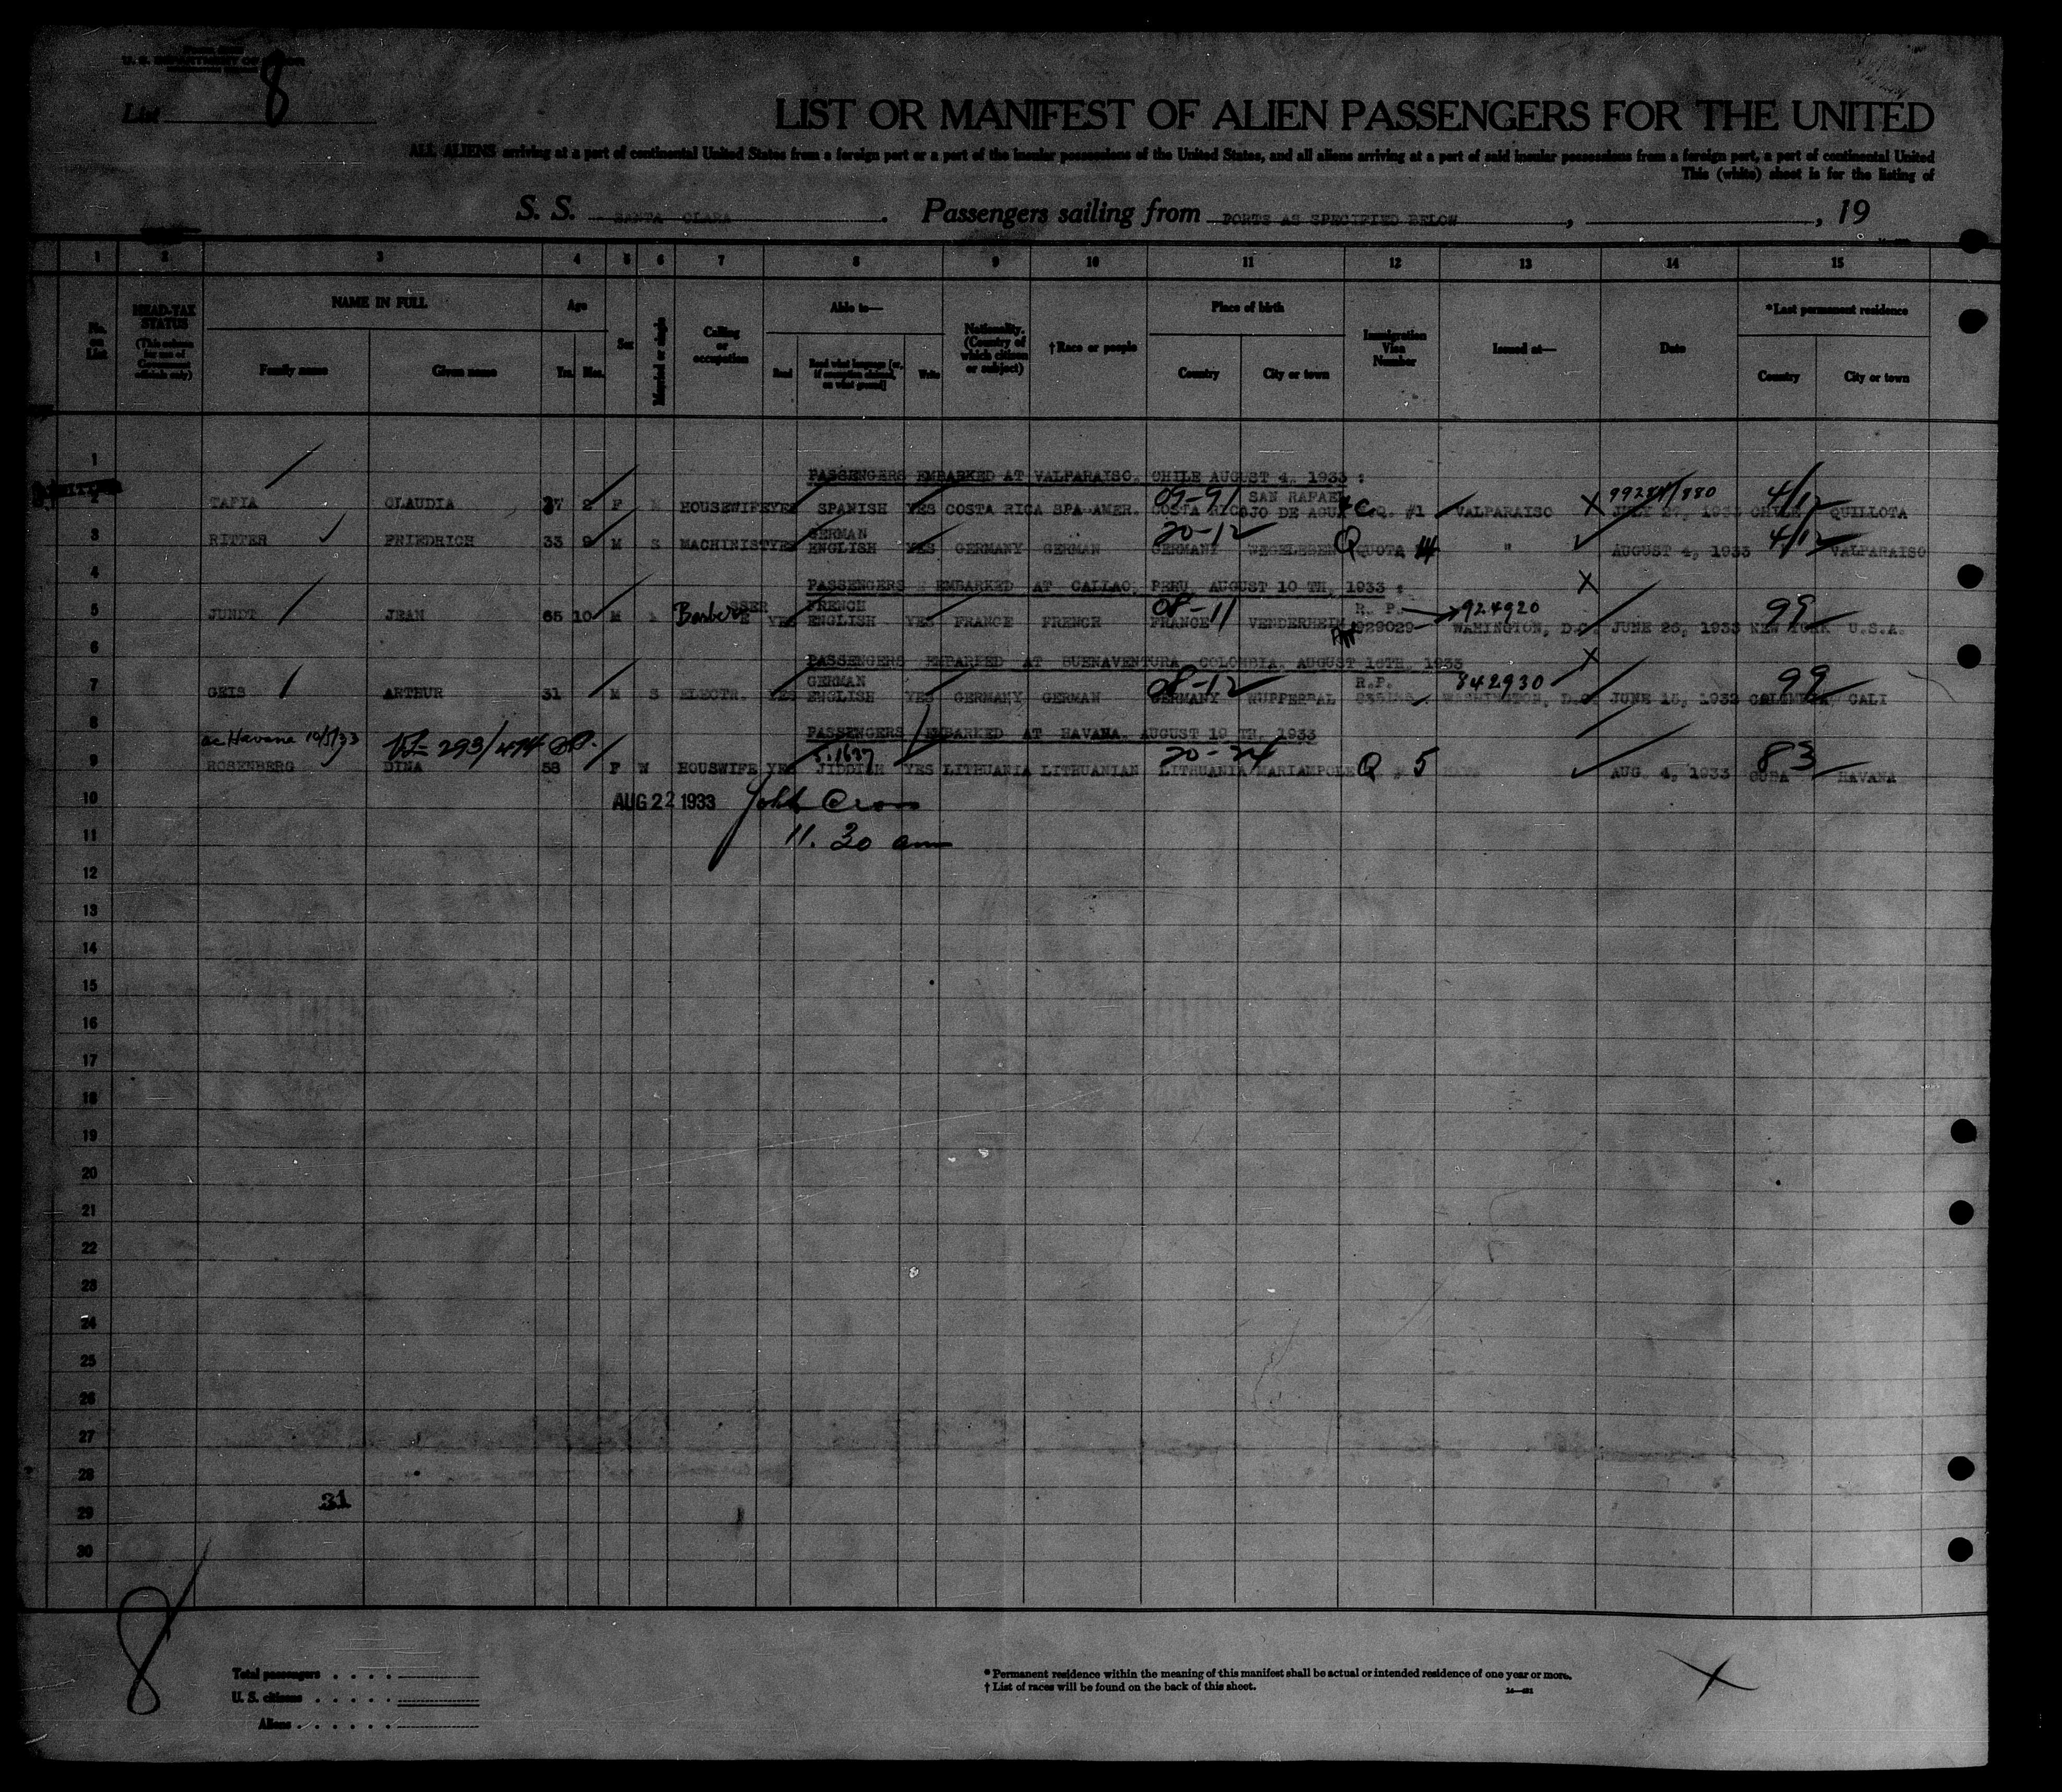 U. S. DEPARTMENT OF LABOR
List 8
LIST OR MANIFEST OF ALIEN PASSENGERS FOR THE UNITED
ALL ALIENS arriving at a port of continental United States from a foreign port or a port of the insular possessions of the United States, and all aliens arriving at a port of said insular possessions from a foreign port, a port of continental United
This (white) sheet is for the listing of
S. S. SANTA CLARA . Passengers sailing from PORTS AS SPECIFIED BELOW , , 19
1 2 3 4 5 6 7 8 9 10 11 12 13 14 15
No. on List
HEAD-TAX STATUS (This column for use of Government officials only)
NAME IN FULL
Family name Given name
Age
Yrs. Mos.
Sex
Married or single
Calling or occupation
Able to—
Read Read what language [or, if exemption claimed, on what ground] Write
Nationality. (Country of which citizen or subject)
†Race or people
Place of birth
Country City or town
Immigration Visa Number
Issued at—
Date
*Last permanent residence
Country City or town
1
PASSENGERS EMBARKED AT VALPARAISO. CHILE AUGUST 4, 1933 :
09-91 SAN RAFAEL 4/12
2 TAPIA CLAUDIA 37 2 F HOUSEWIFE YES SPANISH YES COSTA RICA SPA-AMER. COSTA RICA OJO DE AGUA #1 VALPARAISO X CHILE QUILLOTA
GERMAN 20-12 4/12
3 RITTER FRIEDRICH 33 9 M S MACHINIST YES ENGLISH YES GERMANY GERMAN GERMANY WEGELEBEN Q QUOTA " AUGUST 4, 1933 VALPARAISO
4 PASSENGERS EMBARKED AT CALLAO, PERU, AUGUST 10 TH, 1933 : X
FRENCH 08-11 R. P. 924920 99
5 JUNDT JEAN 65 10 M Barber YES ENGLISH YES FRANCE FRENCH FRANCE VENDERHEIM 929029 WAHINGTON, D.C. JUNE 26, 1933 NEW YORK U.S.A.
6 PASSENGERS EMBARKED AT BUENAVENTURA, COLOMBIA. AUGUST 16TH. 1933 X
GERMAN 08-12 R.P. 842930 99
7 GEIS ARTHUR 31 M S ELECTR. YES ENGLISH YES GERMANY GERMAN GERMANY WUPPERAL WASHINGTON, D.C. COLOMBIA CALI
8 PASSENGERS EMBARKED AT HAVANA. AUGUST 19 TH. 1933
Havana 10/5/33 293/474 20-24 83
9 ROSENBERG DINA 58 F W HOUSWIFE YES JIDDISH YES LITHUANIA LITHUANIAN LITHUANIA MARIAMPOLE Q 5 AUG. 4, 1933 CUBA HAVANA
10 AUG 22 1933 John
11 11. 30 am
12
13
14
15
16
17
18
19
20
21
22
23
24
25
26
27
28
29 31
30
8
Total passengers . . . .
U. S. citizens . . . . .
Aliens . . . . . .
* Permanent residence within the meaning of this manifest shall be actual or intended residence of one year or more.
† List of races will be found on the back of this sheet.
X